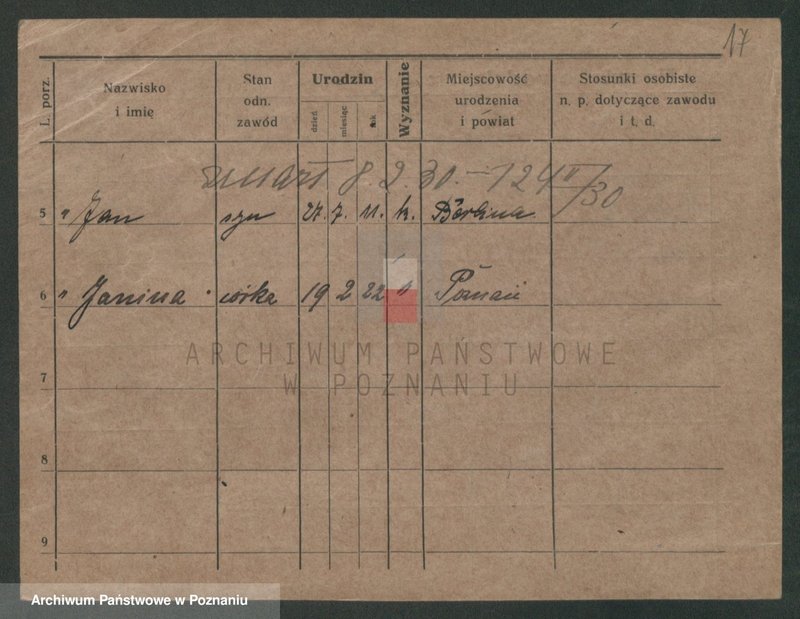 17
L. porz.
Nazwisko i imię
Stan odn. zawód
Urodzin
dzień
miesiąc
rok
Wyznanie
Miejscowość urodzenia i powiat
Stosunki osobiste n. p. dotyczące zawodu i t. d.
zmarł 8.2.30. — 124 II/30
5 " Jan syn 27. 7. 11. k. Berlina
6 " Janina córka 19 2 22 " Poznań
ARCHIWUM PAŃSTWOWE
W POZNANIU
7
8
9
Archiwum Państwowe w Poznaniu